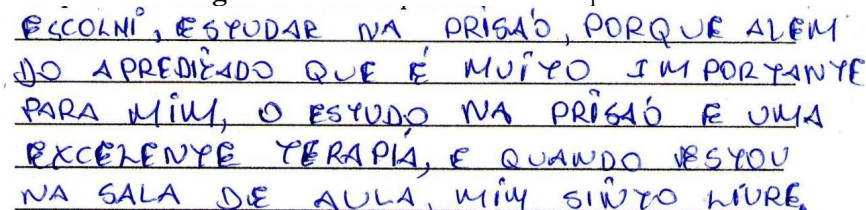 ESCOLHI, ESTUDAR NA PRISAÓ, PORQUE ALEM
DO APREDIZADO QUE É MUITO IMPORTANTE
PARA MIM, O ESTUDO NA PRISAÓ E UMA
EXCELENTE TERAPIA, E QUANDO ESTOU
NA SALA DE AULA, MIM SINTO LIVRE.